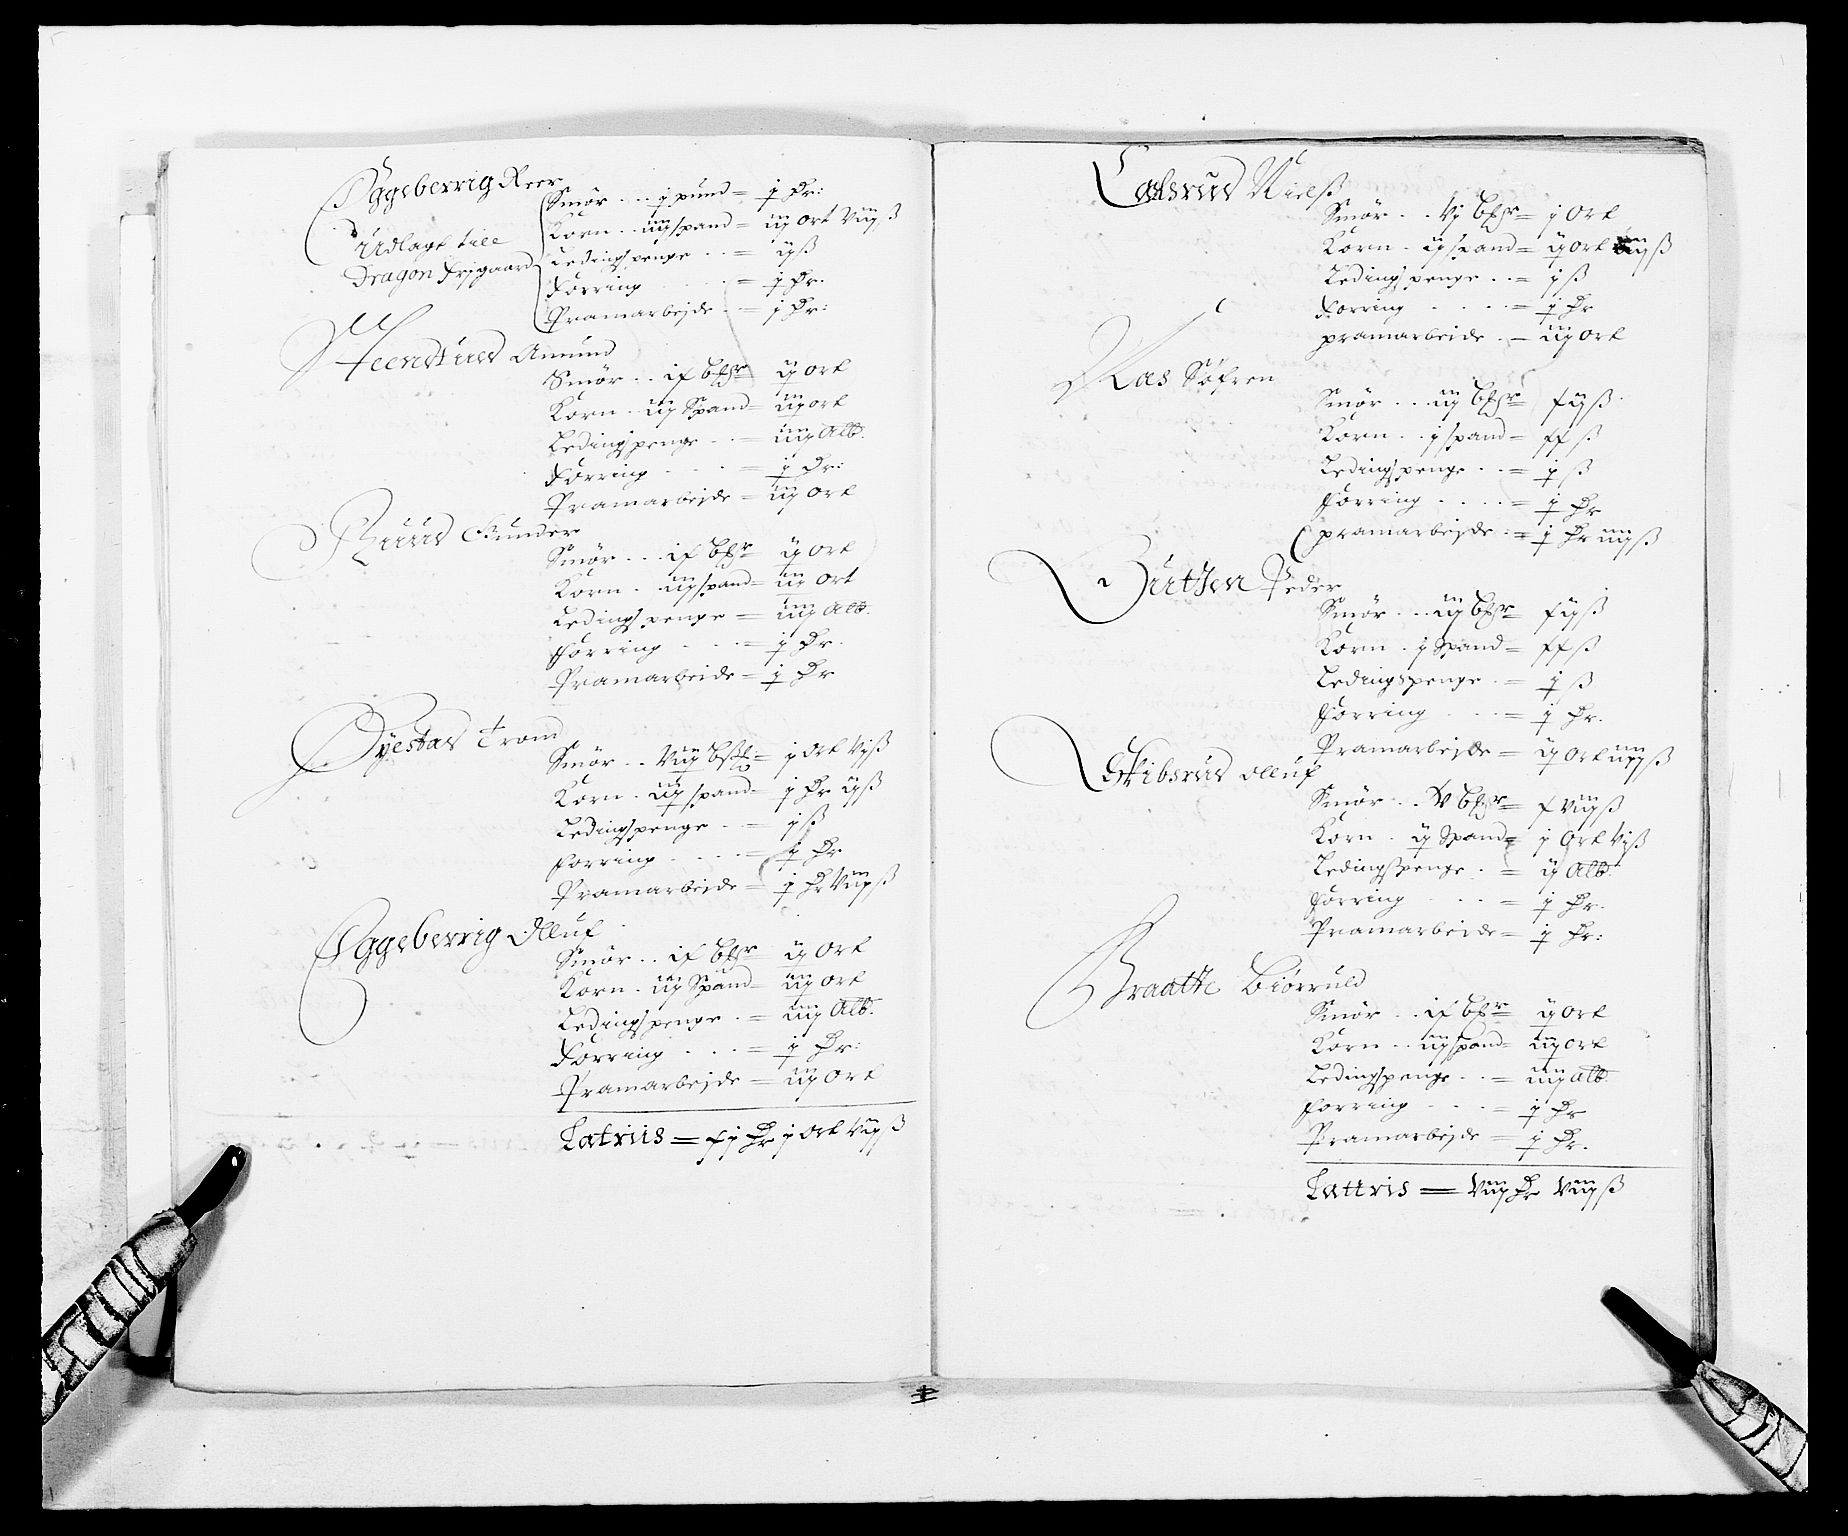 Eggeberrig Reer
Smør . . . j pund = j Dr:
Korn . . iiij spand = iij ort Viij ß
Udlagt till
Ledingspenge . . = ij ß
Dragon Frijgaard
Foring . . . = j Dr.
Pramarbejde . = j Dr:
Heenstued Amund
Smør . . if bpr ij ort
Korn . iij Spand = iij ort
Ledingspenge . . = iiij Alb.
Foring . . . = j Dr:
Pramarbejde = iij ort
Ruud Gunder
Smør . . . if bpr ij ort
Korn . iij spand = iij ort
Ledingspenge = iiij Alb.
Forring . . . = j Dr.
Pramarbeide = j Dr
Øyestad Trond
Smør . . Viij = j ort Vj ß
Korn . iij spand = j Dr ij ß
Ledingspenge . = j ß
Forring . . . = j Dr
Pramarbeide = j Dr Viij ß
Eggeberrig Olluf
Smør . . if bpr ij ort
Korn . iij Spand = iij ort
Ledingspenge . = iiij Alb.
Forring . . . = j Dr:
Pramarbejde = iij ort
Latriis = fj Dr j ort Viij ß
Calsrud Nielß
Smør . . Vj bpr = j ort
Korn . ij spand = ij ort iiij ß
Ledingspenge . . = j ß
Forring . . . = j Dr
pramarbeide . = iij ort
Aas Søfren
Smør . . . iij bpr = fij ß
Korn . . j spand = ff ß
Ledingspenge . . = j ß
Forring . . . = j Dr
pramarbejde . = j Dr iiij ß
Peder
Smør . . . iij bpr = fij ß
Korn . j Spand = ff ß
Ledingspenge . = j ß
Forring . . . = j Dr.
Pramarbejde = ij ort iiij ß
Skibsrud olluf
Smør . . V bpr = f Viij ß
Korn . ij Spand = j ort Vj ß
Ledingspenge . = ij Alb.
Forring . . . = j Dr.
Pramarbeide = j Dr:
Braatte Biørruld
Smør . . if bpr ij ort
Korn . . iij spand = iij ort
Ledingspenge . . = iiij alb.
Forring . . . = j Dr
Pramarbejde = j Dr.
Lattris = Viij Dr Viij ß